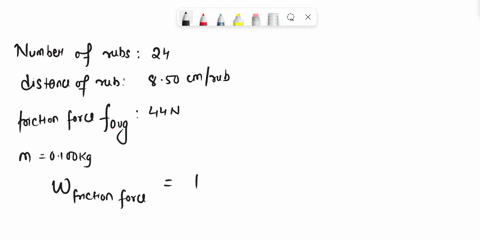 Number of rubs: 24
distance of rub: 8.50 cm/rub
friction force favg: 44N
m = 0.100Kg
W friction force = 1